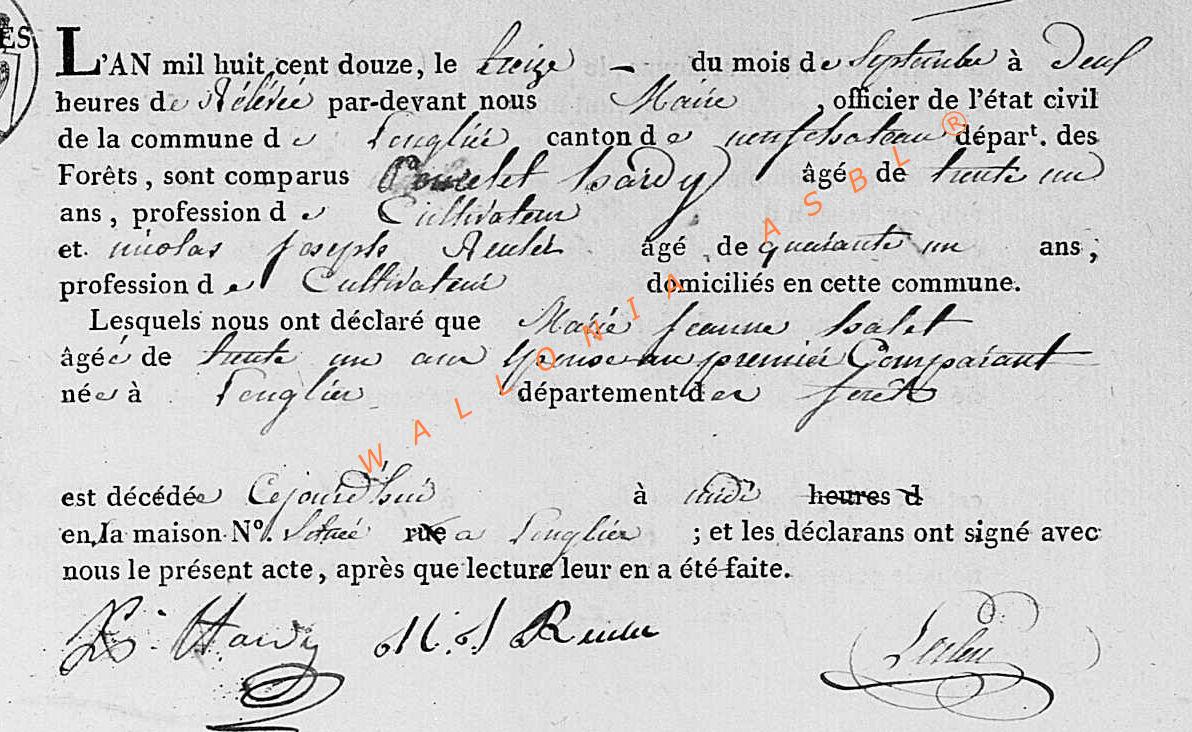 ES
L'AN mil huit cent douze, le treize — du mois de Septembre à Deux
heures de Rélévée par-devant nous Maire , officier de l'état civil
de la commune de Longlier canton de neufchateau départ. des
Forêts, sont comparus hardy âgé de trente un
ans, profession de Cultivateur
et nicolas Joseph âgé de quarante un ans;
profession de Cultivateur domiciliés en cette commune.
Lesquels nous ont déclaré que Marie Jeanne
âgée de trente un ans Epouse au premier Comparant
née à Longlier département des forêts
est décédée Cejourd'hui à midi heures d
en la maison N°. Située rue a Longlier ; et les déclarans ont signé avec
nous le présent acte, après que lecture leur en a été faite.
Hardy N. J.
WALLONIA ASBL ®